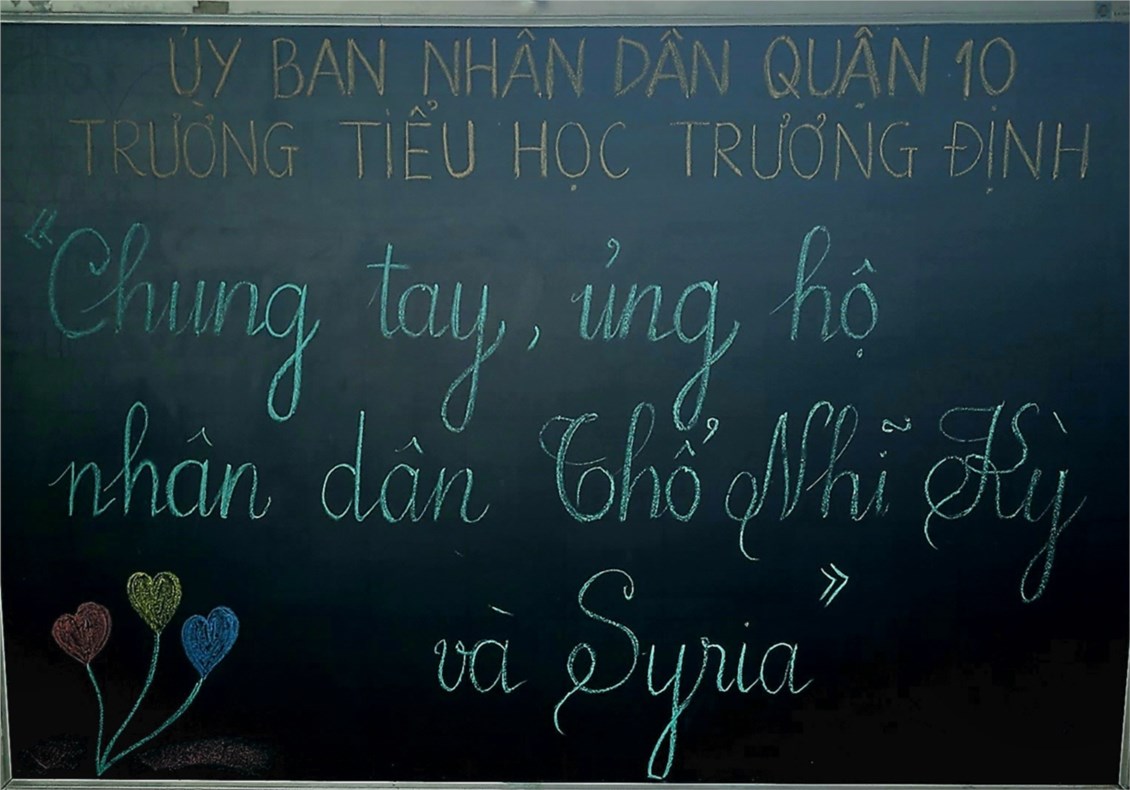 ỦY BAN NHÂN DÂN QUẬN 10
TRƯỜNG TIỂU HỌC TRƯƠNG ĐỊNH
“Chung tay, ủng hộ
nhân dân Thổ Nhĩ Kỳ
và Syria”